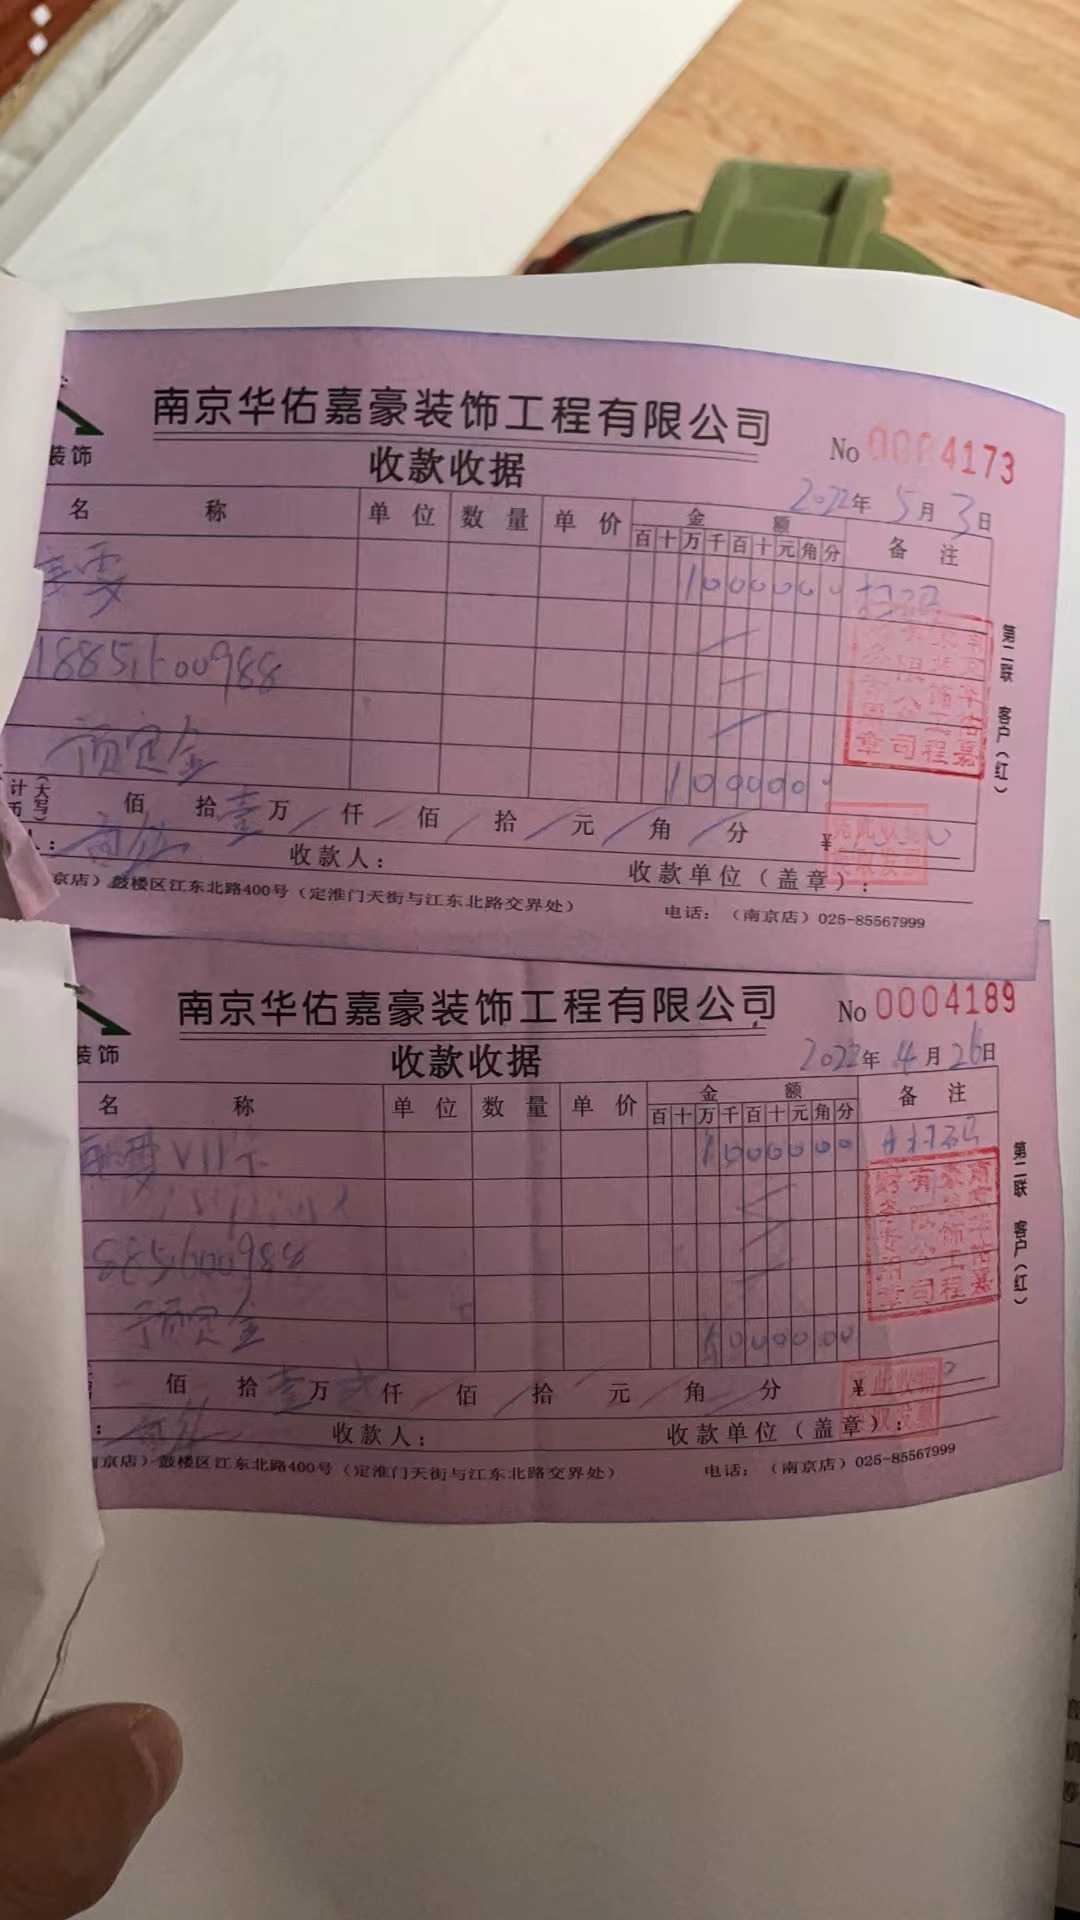 南京华佑嘉豪装饰工程有限公司
装饰
收款收据
No 0004173
2022年5月3日
名称 单位 数量 单价 金额 备注
百十万千百十元角分
雯 1000000 扫码
18851600988
预定金
1000000
(大写) 佰 拾壹万 仟 佰 拾 元 角 分 ¥
收款人: 收款单位(盖章):
京店)鼓楼区江东北路400号(定淮门天街与江东北路交界处) 电话:(南京店)025-85567999
第二联 客户(红)
南京华佑嘉豪装饰工程有限公司
装饰
收款收据
No 0004189
2022年4月26日
名称 单位 数量 单价 金额 备注
百十万千百十元角分
雯VIP卡 1000000 扫码
8851600988
预定金
佰 拾壹万 仟 佰 拾 元 角 分 ¥
收款人: 收款单位(盖章):
南京店)鼓楼区江东北路400号(定淮门天街与江东北路交界处) 电话:(南京店)025-85567999
第二联 客户(红)